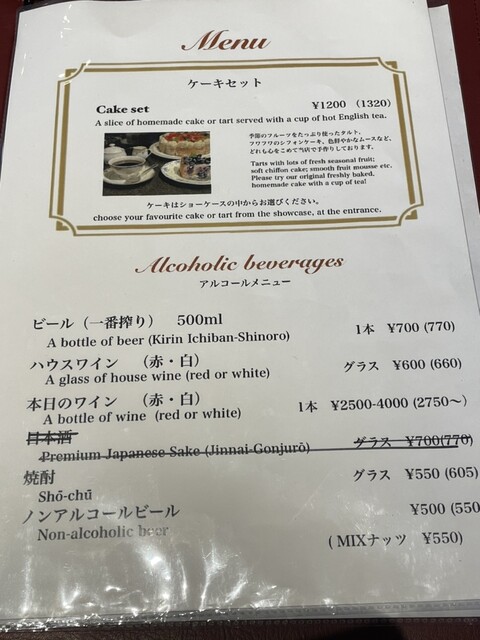 Menu
ケーキセット
Cake set ¥1200 (1320)
A slice of homemade cake or tart served with a cup of hot English tea.
季節のフルーツをたっぷり使ったタルト、
フワフワのシフォンケーキ、色鮮やかなムースなど、
どれも心をこめて当店で手作りしております。
Tarts with lots of fresh seasonal fruit;
soft chiffon cake; smooth fruit mousse etc.
Please try our original freshly baked.
homemade cake with a cup of tea!
ケーキはショーケースの中からお選びください。
choose your favourite cake or tart from the showcase, at the entrance.
Alcoholic beverages
アルコールメニュー
ビール（一番搾り） 500ml
A bottle of beer (Kirin Ichiban-Shinoro) 1本 ¥700 (770)
ハウスワイン （赤・白）
A glass of house wine (red or white) グラス ¥600 (660)
本日のワイン （赤・白）
A bottle of wine (red or white) 1本 ¥2500-4000 (2750～)
日本酒 グラス ¥700(770)
Premium Japanese Sake (Jinnai-Gonjurō)
焼酎 グラス ¥550 (605)
Shō-chū
ノンアルコールビール ¥500 (550
Non-alcoholic beer
( MIXナッツ ¥550)